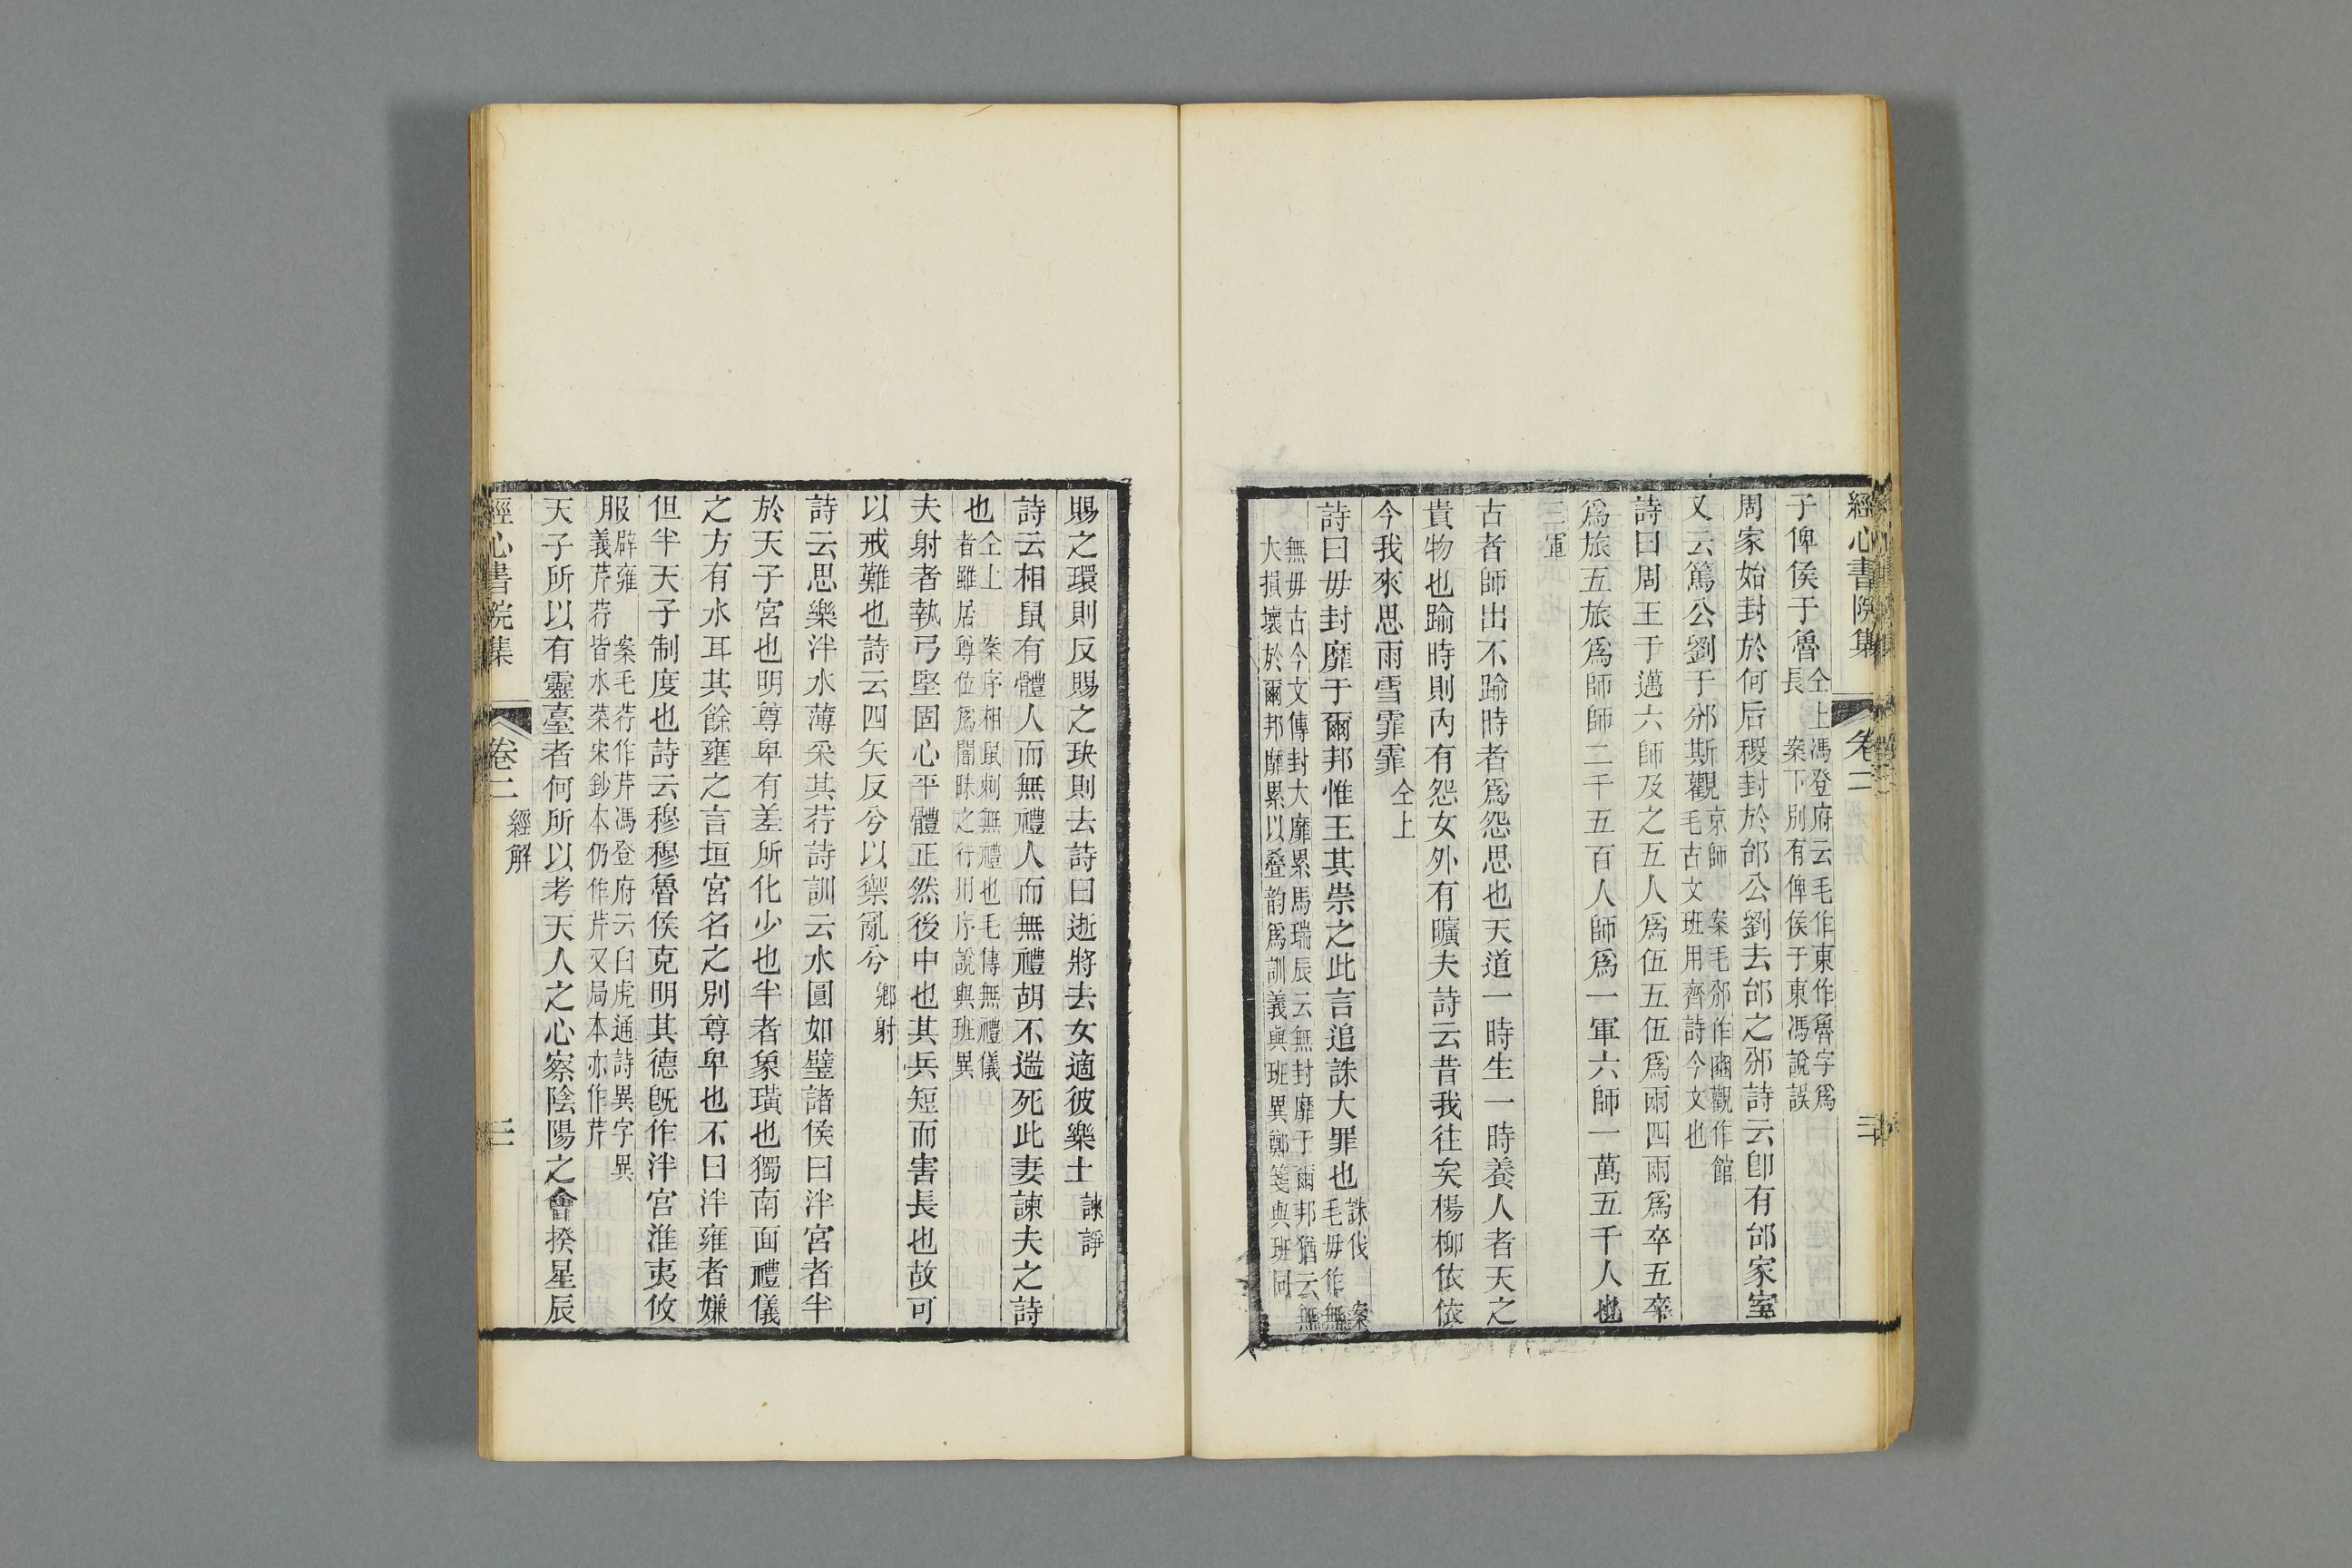 經心書院集 卷二 二
子俾侯于魯仝上馮登府云毛作東作魯字爲長 案下別有俾侯于東馮說誤
周家始封於何后稷封於邰公劉去邰之邠詩云卽有邰家室
又云篤公劉于邠斯觀京師 案毛邠作豳觀作館毛古文班用齊詩今文也
詩曰周王于邁六師及之五人爲伍五伍爲兩四兩爲卒五卒
爲旅五旅爲師師二千五百人師爲一軍六師一萬五千人也
三軍
古者師出不踰時者爲怨思也天道一時生一時養人者天之
貴物也踰時則內有怨女外有曠夫詩云昔我往矣楊柳依依
今我來思雨雪霏霏仝上
詩曰毋封靡于爾邦惟王其崇之此言追誅大罪也誅伐 案毛毋作無
無毋古今文傳封大靡累馬瑞辰云無封靡于爾邦猶云無
大損壞於爾邦靡累以疊韵爲訓義與班異鄭箋與班同
賜之環則反賜之玦則去詩曰逝將去女適彼樂土諫諍
詩云相鼠有體人而無禮人而無禮胡不遄死此妻諫夫之詩
也仝上 案序相鼠刺無禮也毛傳無禮儀者雖居尊位爲闇昧之行用序說與班異
夫射者執弓堅固心平體正然後中也其兵短而害長也故可
以戒難也詩云四矢反兮以禦亂兮鄉射
詩云思樂泮水薄采其荇詩訓云水圓如璧諸侯曰泮宮者半
於天子宮也明尊卑有差所化少也半者象璜也獨南面禮儀
之方有水耳其餘壅之言垣宮名之別尊卑也不曰泮雍者嫌
但半天子制度也詩云穆穆魯侯克明其德旣作泮宮淮夷攸
服辟雍 案毛荇作芹馮登府云白虎通詩異字異義芹荇皆水菜宋鈔本仍作芹又局本亦作芹
天子所以有靈臺者何所以考天人之心察陰陽之會揆星辰
經心書院集 卷二 經解 二